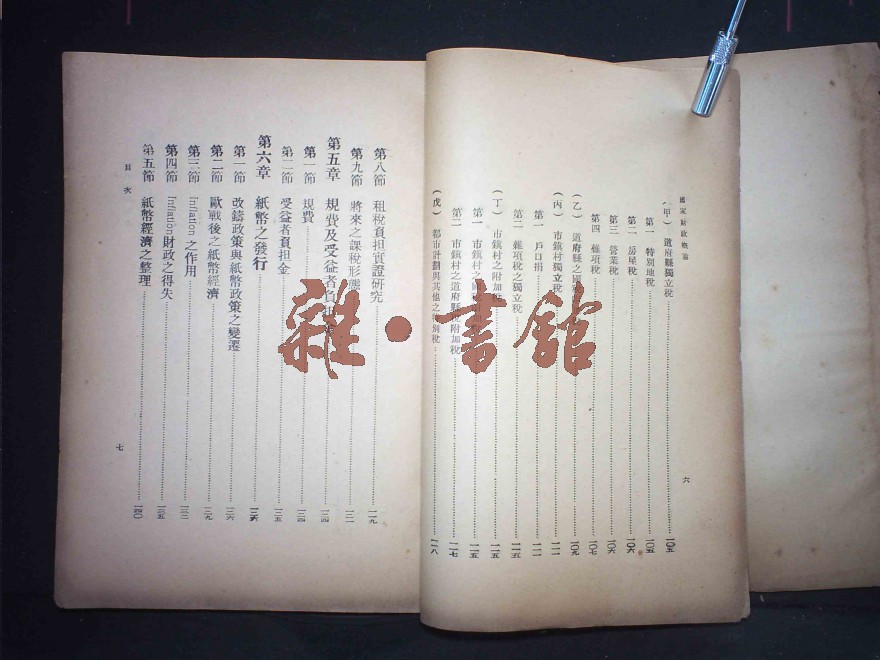 國家財政概論
(甲) 道府縣獨立稅 一〇五
第一 特別地稅 一〇五
第二 房屋稅 一〇六
第三 營業稅 一〇六
第四 雜項稅 一〇七
(乙) 道府縣之 一〇九
(丙) 市鎮村獨立稅 一一一
第一 戶口捐 一一一
第二 雜項稅之獨立稅 一一五
(丁) 市鎮村之附加稅 一一五
第一 市鎮村之 一一五
第二 市鎮村之道府縣 附加稅 一一七
(戊) 都市計劃與其他之特別稅 一一八
六
第八節 租稅負担實證研究 一一九
第九節 將來之課稅形態 一二一
第五章 規費及受益者負担 一二四
第一節 規費 一二四
第二節 受益者負担金 一二五
第六章 紙幣之發行 一二六
第一節 改鑄政策與紙幣政策之變遷 一二六
第二節 歐戰後之紙幣經濟 一二九
第三節 Inflation 之作用 一三二
第四節 Inflation 財政之得失 一三五
第五節 紙幣經濟之整理 一四〇
目次
七
雜·書館